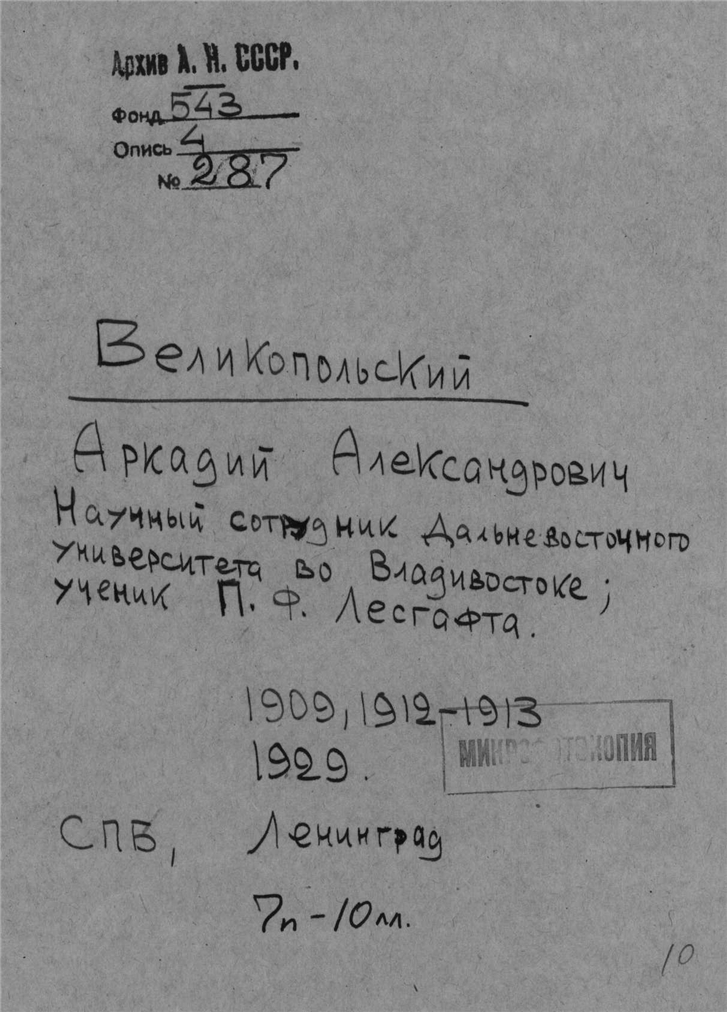 Архив А. Н. СССР.
Фонд 543
Опись 4
№ 287
Великопольский
Аркадий Александрович
Научный сотрудник Дальневосточного
университета во Владивостоке;
ученик П. Ф. Лесгафта.
1909, 1912-1913
1929.
СПБ, Ленинград
7п-10лл.
10